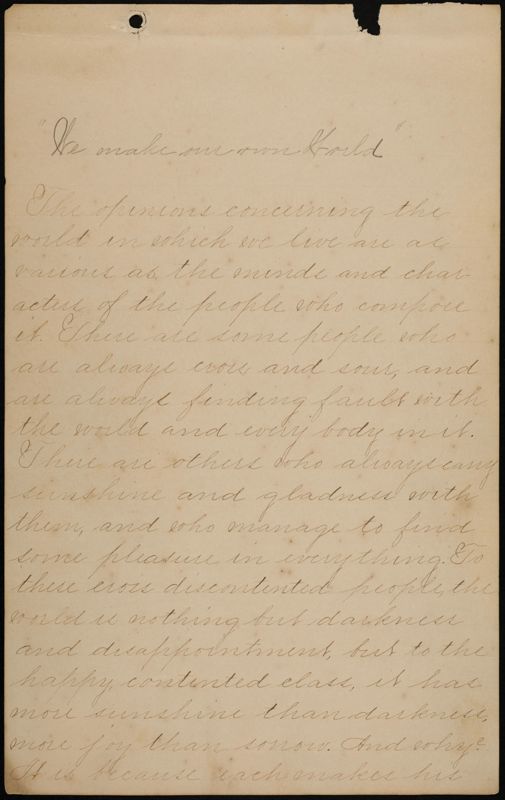 "We make our own World"
The opinions concerning the
world in which we live are as
various as the minds and char-
acters of the people who compose
it. There are some people who
are always cross and sour, and
are always finding fault with
the world and every body in it.
There are others who always carry
sunshine and gladness with
them, and who manage to find
some pleasure in everything. To
these cross discontented people, the
world is nothing but darkness
and disappointment, but to the
happy, contented class, it has
more sunshine than darkness,
more joy than sorrow. And why?
It is because each makes his